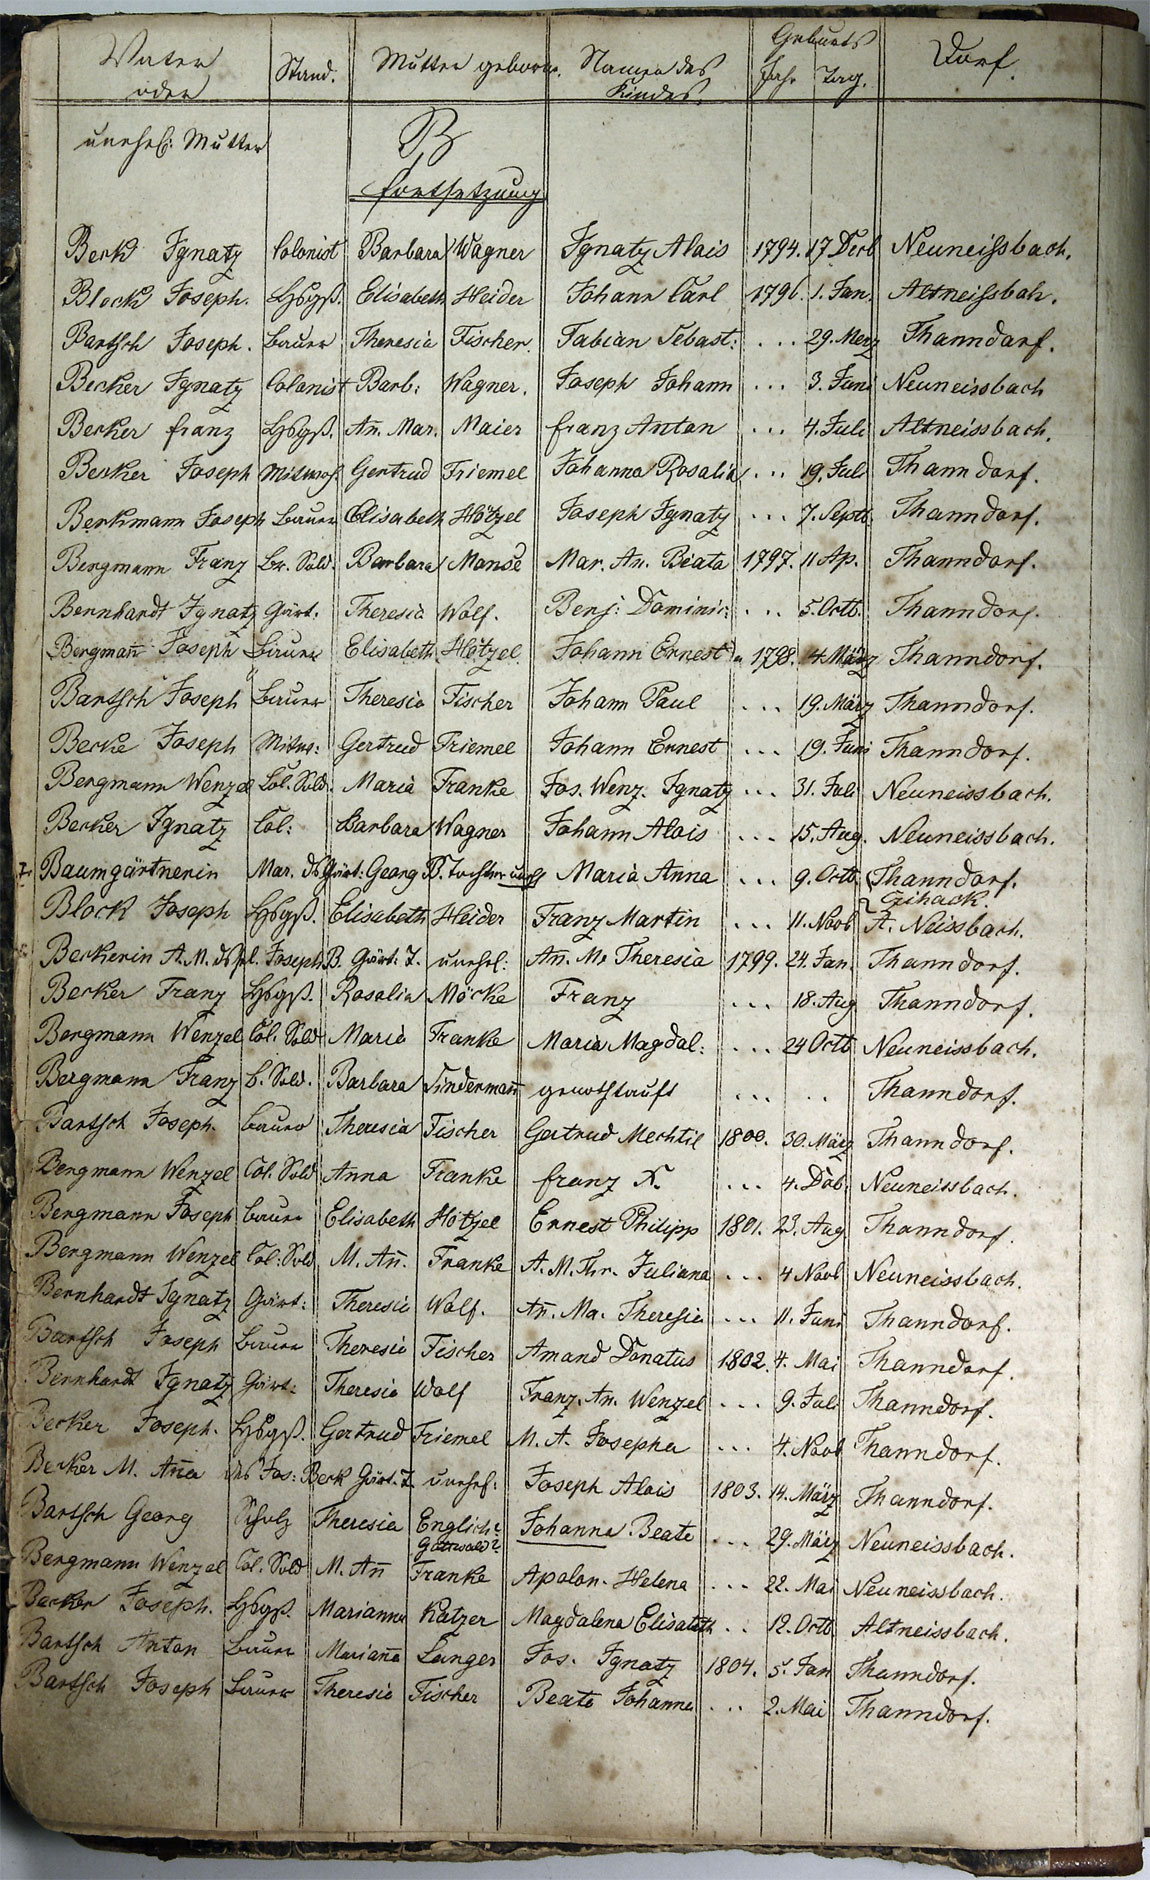 Vater Stand. Mutter geborne. Namen des Geburts Dorf.
oder Kindes. Jahr Tag.
unehel: Mutter B
Fortsetzung
Berk Ignatz Colonist Barbara Wagner Ignatz Alois 1794. 17 Decb Neuneissbach.
Block Joseph. Hsgß. Elisabeth Heider Johann Carl 1796. 1. Jan. Altneissbah.
Bartsch Joseph. Bauer Theresia Fischer. Fabian Sebast: ... 29. Merz Thanndorf.
Becker Ignatz Colonist Barb: Wagner. Joseph Johann ... 3. Juni Neuneissbach
Berker franz Hsgß. An̄. Mar. Maier franz Anton ... 4. Juli Altneissbach.
Berker Joseph Mitwoh. Gertrud Friemel Johanna Rosalia ... 19. Juli Thanndorf.
Berkmann Joseph Bauer Elisabeth Hötzel Joseph Ignatz ... 7. Septb. Thanndorf.
Bergmann Franz Br. Sold. Barbara Monse Mar. An. Beata 1797. 11 Ap. Thanndorf.
Bernhardt Ignatz Gärt: Theresia Wolf. Benj: Dominic: ... 5. Octb. Thanndorf.
Bergman̄ Joseph Bauer Elisabeth Hötzel Johann Ernest 1798. 4. März Thanndorf.
Bartsch Joseph Bauer Theresia Fischer Johann Paul ... 19. März Thanndorf.
Becke Joseph Mitw: Gertrud Friemel Johann Ernest ... 19. Juni Thanndorf.
Bergmann Wenzel Col. Sold. Maria Franke Jos. Wenz. Ignatz ... 31. Juli Neuneissbach.
Becker Ignatz Col: Barbara Wagner Johann Alois ... 15. Aug. Neuneissbach.
Baumgärtnerin Mar. ds Gärt: Georg B. Tochter uneh Maria Anna ... 9. Octb. Thanndorf.
Block Joseph Hsgß. Elisabeth Heider Franz Martin ... 11. Novb Gihack. A. Neissbach.
Beckerin A. M. ds Joseph B. Gärt: T. unehel: An̄. Ma Theresia 1799. 24. Jan. Thanndorf.
Becker Franz Hsgß. Rosalia Möcke Franz ... 18. Aug Thanndorf.
Bergmann Wenzel Col. Sold Maria Franke Maria Magdal: ... 24 Octb Neuneissbach.
Bergmann Franz b. Sold. Barbara Lindermañ genothtauft ... .. Thanndorf.
Bartsch Joseph. Bauer Theresia Fischer Gertrud Mechtil 1800. 30. März Thanndorf.
Bergmann Wenzel Col. Sold Anna Franke franz X. ... 4. Dcb. Neuneissbach.
Bergmann Joseph Bauer Elisabeth Hötzel Ernest Philipp 1801. 23. Aug Thanndorf.
Bergmann Wenzel Col: Sold M. An̄. Franke A. M. Thr. Juliana ... 4 Novb Neuneissbach.
Bernhardt Ignatz Gärt: Theresia Wolf. An̄. Ma. Theresia ... 11. Juni Thanndorf.
Bartsch Joseph Bauer Theresia Fischer Amand Donatus 1802. 4. Mai Thanndorf.
Bernhardt Ignatz Gärt: Theresia Wolf Franz. An. Wenzel ... 9. Juli Thanndorf.
Becker Joseph. Hsgß. Gertrud Friemel M. A. Josepha ... 4. Novb Thanndorf.
Becker M. An̄a des Jos: Beck Gärt. T. unehel: Joseph Alois 1803. 14. März Thanndorf.
Bartsch Georg Scholz Theresia Englich? Johanna Beate ... 29. März Neuneissbach.
Gottwald?
Bergmann Wenzel Col. Sold M. An̄ Franke Apolon. Helena ... 22. Mai Neuneissbach.
Becker Joseph. Hsgß. Marianna Katzer Magdalena Elisabeth .. 12. Octb Altneissbach.
Bartsch Anton Bauer Marian̄a Langer Jos. Ignatz 1804. 5. Jan Thanndorf.
Bartsch Joseph Bauer Theresia Fischer Beate Johanne ... 2. Mai Thanndorf.